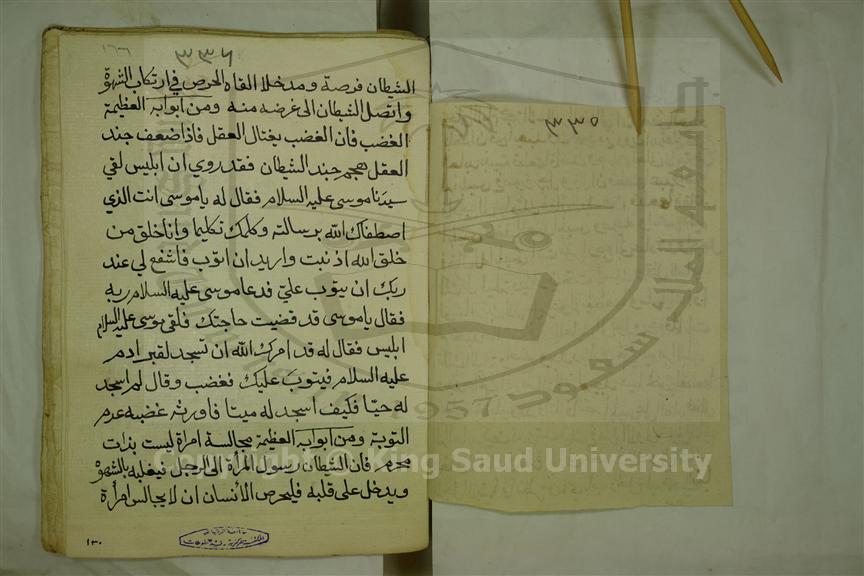 ١٦٦
٣٣٦
الشيطان فرصة ومدخلا القاه الحرص في ارتكاب الشهوة
واتصل الشيطان الى غرضه منه ومن ابوابه العظيمة
الغضب فان الغضب يغتال العقل فاذا ضعف جند
العقل هجم جند الشيطان فقد روي ان ابليس لقي
سيدنا موسى عليه السلام فقال له ياموسى انت الذي
اصطفاك الله برسالته وكلمك تكليما وانا خلق من
خلق الله اذنبت واريد ان اتوب فاشفع لي عند
ربك ان يتوب عليّ فدعا موسى عليه السلام ربه
فقال ياموسى قد قضيت حاجتك فلقى موسى عليه السلام
ابليس فقال له قد امرك الله ان تسجد لقبر ادم
عليه السلام فيتوب عليك فغضب وقال لم اسجد
له حيّا فكيف اسجد له ميتا فاورثه غضبه عدم
التوبة ومن ابوابه العظيمة مجالسة امراة ليست بذات
محرم فان الشيطان رسول المرأة الى الرجل فيغلبه بالشهوة
ويدخل على قلبه فليحرص الأنسان ان لا يجالس امرأة
١٣٠
٣٣٥
جامعة الملك سعود
1957
Copyright © King Saud University